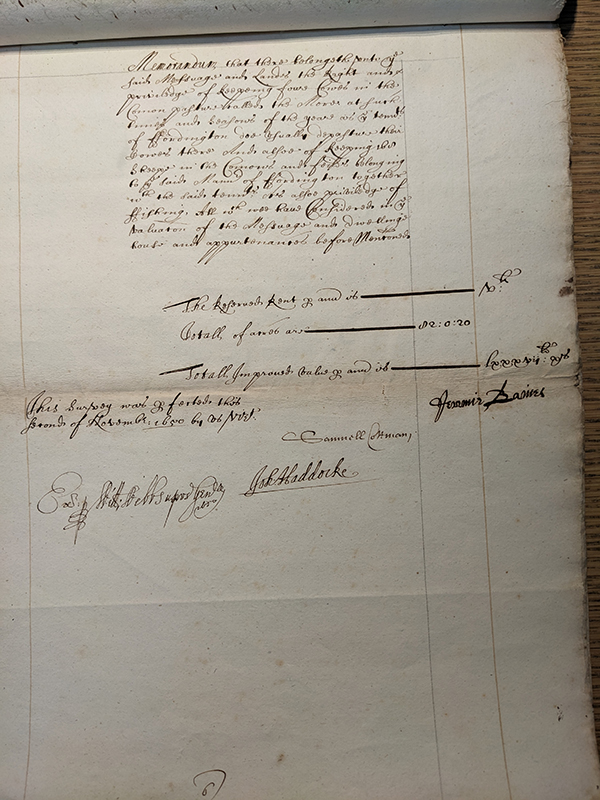 Memorandum that there belongeth unto ye
said Messuage and Lands the Right and
priviledge of keepeing fowre Cowes in the
Comon pasture called the Moore at such
times and seasons of the yeare as ye tennts
of fordington doe usually depasture their
Cowes there And alsoe of keeping 168
Sheepe in the Comons and feilds belonging
to ye said Mannor of ffordington together
wth the said tennts As alsoe priviledge of
ffishing, All wch wee have Considered in ye
valuation of the Messuage and dwelling
house and appurtenances before Mentioned
The Reserved Rent p and is vli
Totall of acres are 82:0:20
Totall Improved value p and is lxxxvijli
This Survey was pfected this
second of November 1650 by us vizt.
Jeremie Baines
Samuell Cottman
Exd p Will Webb Supervisr Genll
Joh Haddocke
6